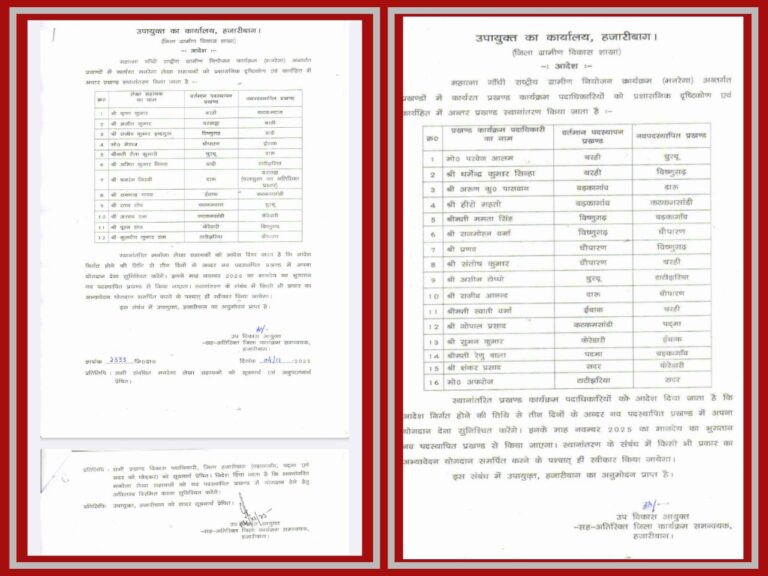 उपायुक्त का कार्यालय, हजारीबाग।
(जिला ग्रामीण विकास शाखा)
-: आदेश :-
महात्मा गाँधी राष्ट्रीय ग्रामीण नियोजन कार्यक्रम (मनरेगा) अन्तर्गत
प्रखण्डों में कार्यरत मनरेगा लेखा सहायकों को प्रशासनिक दृष्टिकोण एवं कार्यहित में
अन्तर प्रखण्ड स्थानांतरण किया जाता है :-
क्र० लेखा सहायक का नाम वर्तमान पदस्थापन प्रखण्ड नवपदस्थापित प्रखण्ड
1 श्री कुमार बरही
2 श्री कुमार बरही
3 श्री कुमार विष्णुगढ़
4 मो० चौपारण ईचाक
5 श्रीमती कुमारी चुरचू दारू
6 श्री टाटीझरिया
7 श्री दारू
8 श्री ईचाक कटकमसांडी
9 श्री चुरचू
10 श्री कटकमसांडी केरेडारी
11 श्री केरेडारी विष्णुगढ़
12 श्री कुमार टाटीझरिया चौपारण
स्थानांतरित मनरेगा लेखा सहायकों को आदेश दिया जाता है कि आदेश
निर्गत होने की तिथि से तीन दिनों के अन्दर नव पदस्थापित प्रखण्ड में अपना
योगदान देना सुनिश्चित करेंगे। इनके माह नवम्बर 2025 का मानदेय का भुगतान
नव पदस्थापित प्रखण्ड से किया जाएगा। स्थानान्तरण के संबंध में किसी भी प्रकार का
अभ्यावेदन योगदान समर्पित करने के पश्चात् ही स्वीकार किया जायेगा।
इस संबंध में उपायुक्त, हजारीबाग का अनुमोदन प्राप्त है।
उप विकास आयुक्त
-सह-अतिरिक्त जिला कार्यक्रम समन्वयक,
हजारीबाग।
ज्ञापांक /जि०ग्रा० दिनांक 2025
प्रतिलिपि : सभी संबंधित मनरेगा लेखा सहायकों को सूचनार्थ एवं अनुपालनार्थ
प्रेषित।
प्रतिलिपि : सभी प्रखण्ड विकास पदाधिकारी, जिला हजारीबाग पदमा एवं
सदर को छोड़कर) को सूचनार्थ प्रेषित। निदेश दिया जाता है कि
मनरेगा लेखा सहायकों को नव पदस्थापित प्रखण्ड में योगदान देने हेतु
अविलम्ब विरमित करना सुनिश्चित करेंगे।
प्रतिलिपि: उपायुक्त, हजारीबाग को सादर सूचनार्थ प्रेषित।
उप विकास आयुक्त
-सह-अतिरिक्त जिला कार्यक्रम समन्वयक,
हजारीबाग।
उपायुक्त का कार्यालय, हजारीबाग।
(जिला ग्रामीण विकास शाखा)
-: आदेश :-
महात्मा गाँधी राष्ट्रीय ग्रामीण नियोजन कार्यक्रम (मनरेगा) अन्तर्गत
प्रखण्डों में कार्यरत प्रखण्ड कार्यक्रम पदाधिकारियों को प्रशासनिक दृष्टिकोण एवं
कार्यहित में अन्तर प्रखण्ड स्थानांतरण किया जाता है :-
क्र० प्रखण्ड कार्यक्रम पदाधिकारी का नाम वर्तमान पदस्थापन प्रखण्ड नवपदस्थापित प्रखण्ड
1 मो० परवेज आलम बरही चुरचू
2 श्री धर्मेन्द्र कुमार सिन्हा बरही विष्णुगढ़
3 श्री अरूण कु० पासवान बड़कागाँव दारू
4 श्री हीरो महतो बड़कागाँव कटकमसांडी
5 श्रीमती ममता सिंह विष्णुगढ़ बड़कागाँव
6 श्री राजमोहन वर्मा विष्णुगढ़ चौपारण
7 श्री प्रणव चौपारण विष्णुगढ़
8 श्री संतोष कुमार चौपारण बरही
9 श्री असीम टोप्पो चुरचू टाटीझरिया
10 श्री राजीव आनन्द दारू चौपारण
11 श्रीमती स्वाती वर्मा ईचाक बरही
12 श्री गोपाल प्रसाद कटकमसांडी पदमा
13 श्री सुमन कुमार केरेडारी ईचाक
14 श्रीमती रेणु बाला पदमा बड़कागाँव
15 श्री शंकर प्रसाद सदर केरेडारी
16 मो० अफरोज टाटीझरिया सदर
स्थानांतरित प्रखण्ड कार्यक्रम पदाधिकारियों को आदेश दिया जाता है कि
आदेश निर्गत होने की तिथि से तीन दिनों के अन्दर नव पदस्थापित प्रखण्ड में अपना
योगदान देना सुनिश्चित करेंगे। इनके माह नवम्बर 2025 का मानदेय का भुगतान
नव पदस्थापित प्रखण्ड से किया जाएगा। स्थानान्तरण के संबंध में किसी भी प्रकार का
अभ्यावेदन योगदान समर्पित करने के पश्चात् ही स्वीकार किया जायेगा।
इस संबंध में उपायुक्त, हजारीबाग का अनुमोदन प्राप्त है।
उप विकास आयुक्त
-सह-अतिरिक्त जिला कार्यक्रम समन्वयक,
हजारीबाग।